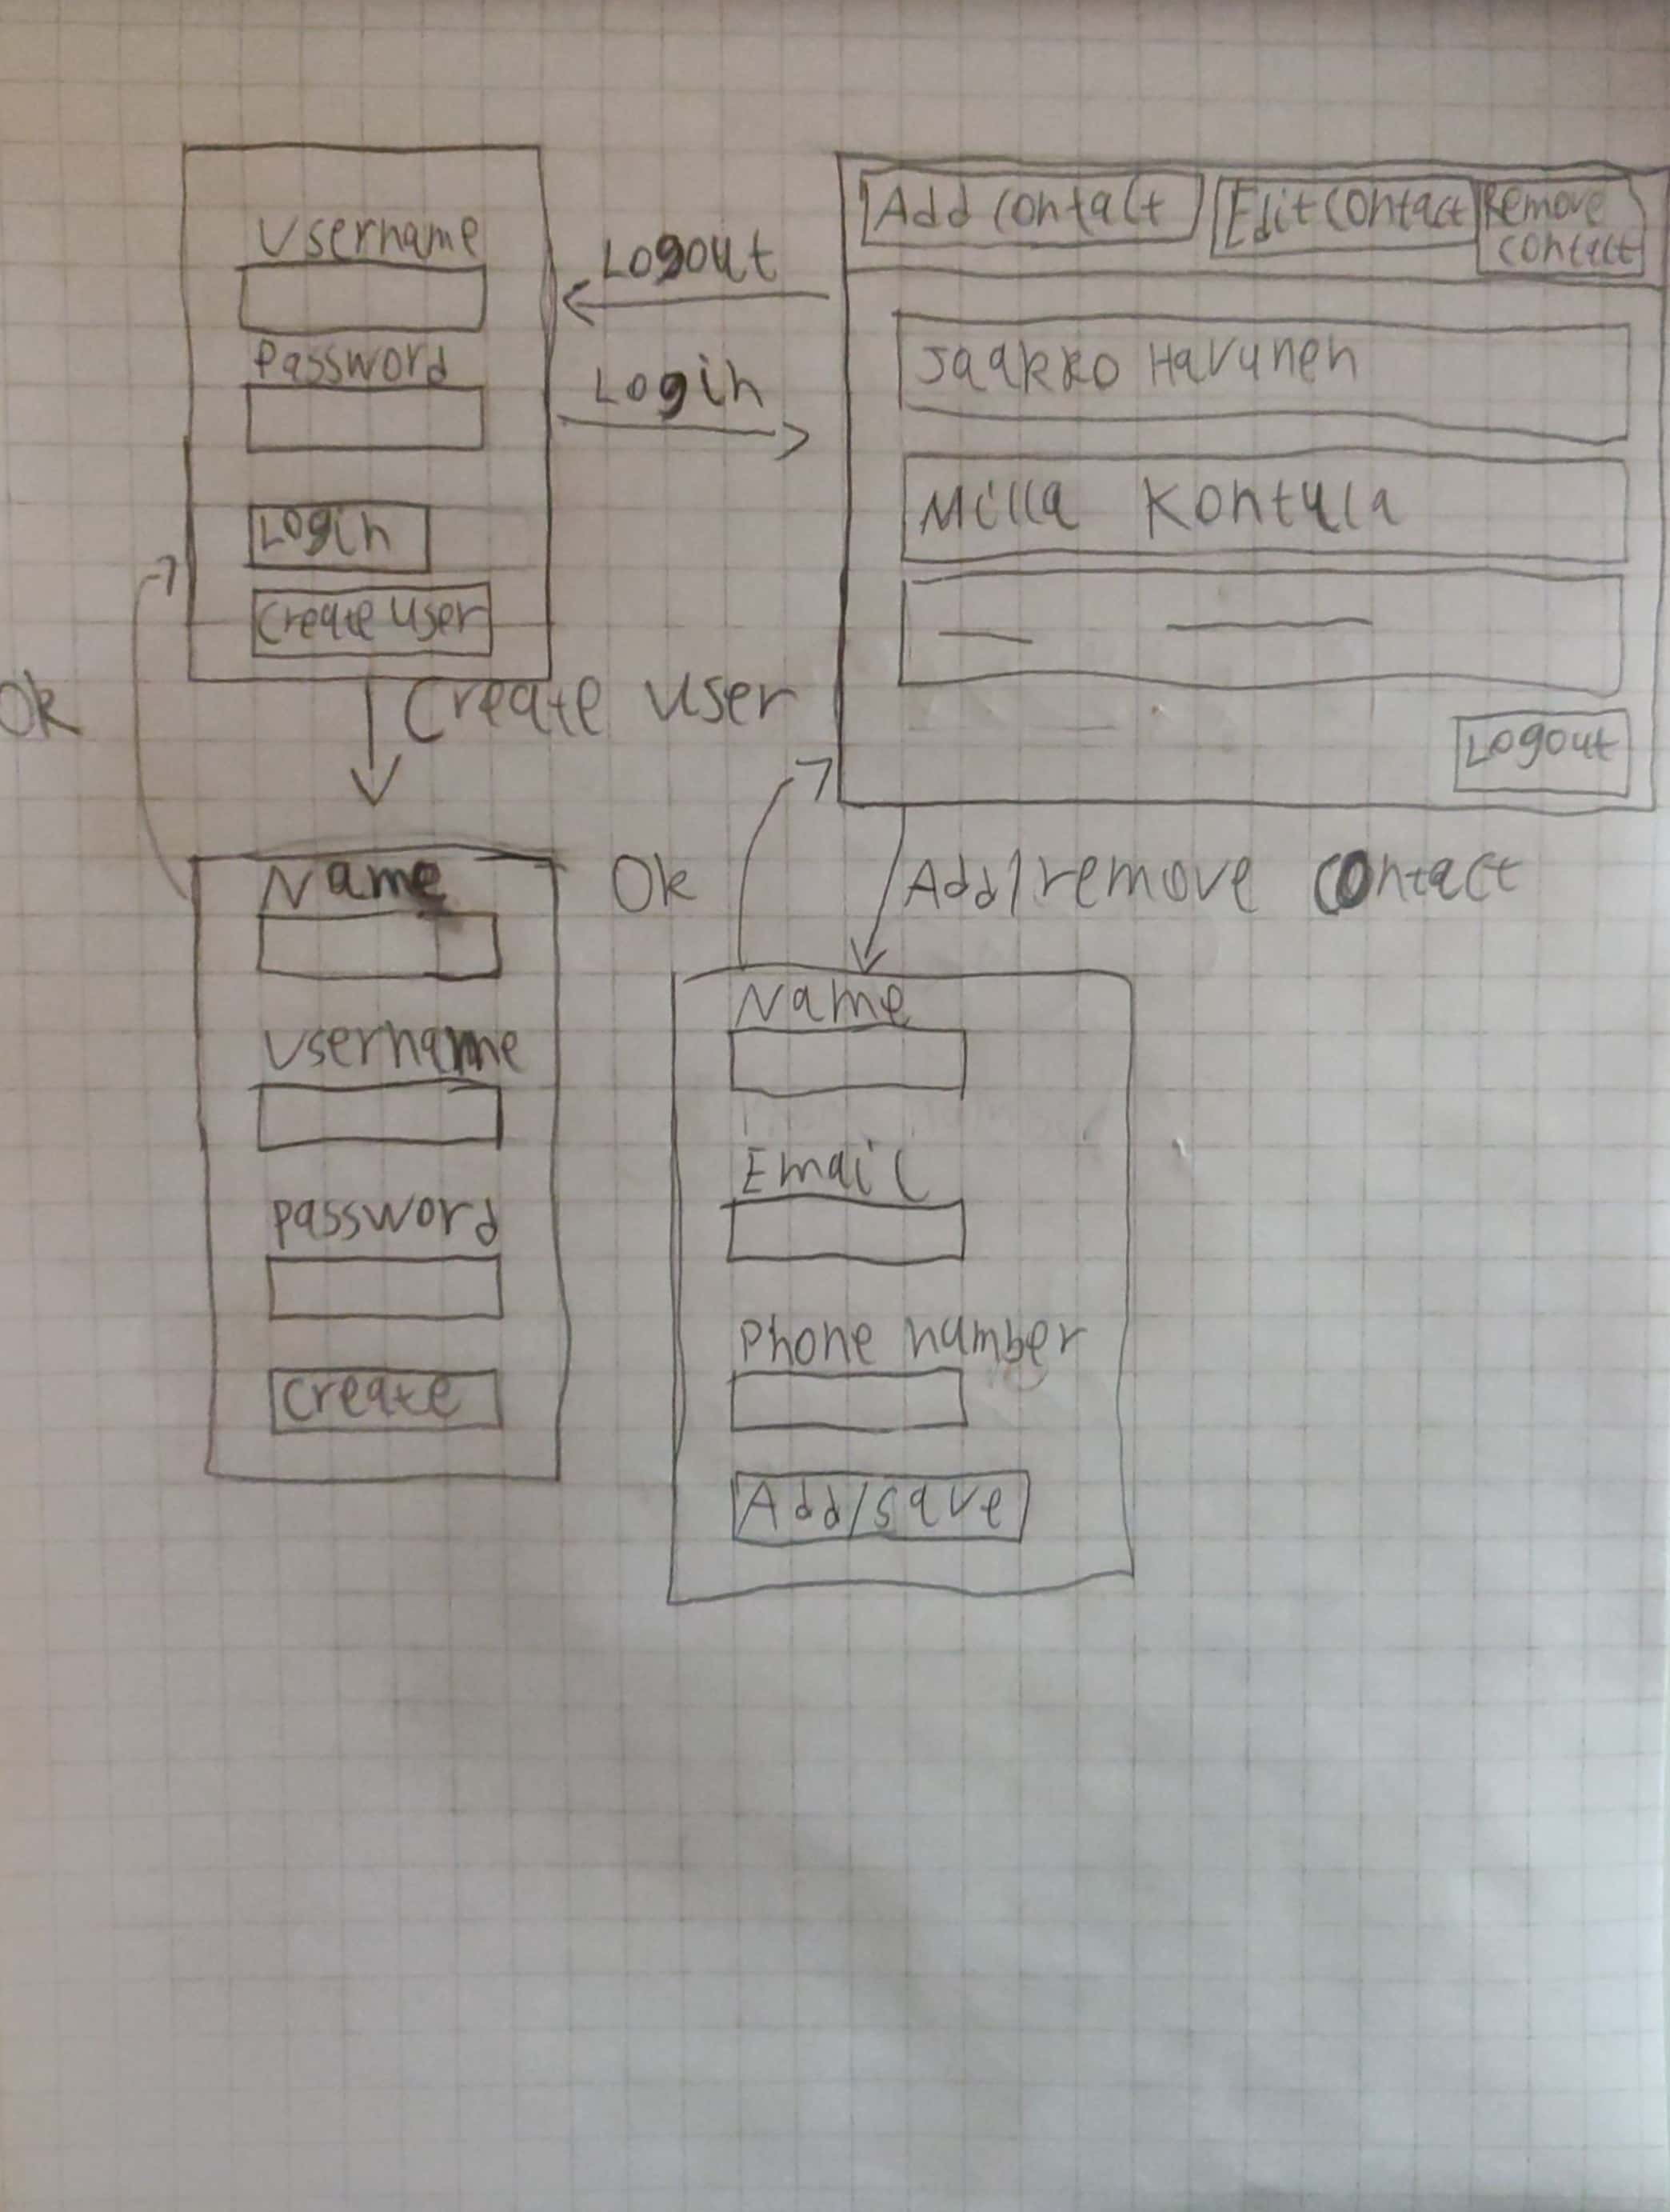 Username
Password
Login
Create user
Logout
Login
Add contact
Edit contact
Remove
contact
Jaakko Havunen
Milla Kontula
Logout
Ok
Create user
Name
Username
password
Create
Ok
Add/remove contact
Name
Email
Phone number
Add/save